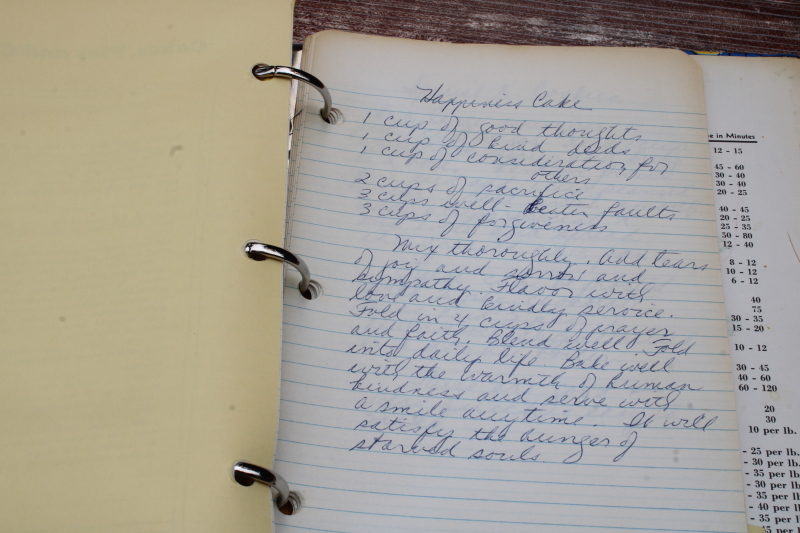 Happiness Cake
1 cup of good thoughts
1 cup of kind deeds
1 cup of consideration for
others
2 cups of sacrifice
3 cups well-beaten faults
3 cups of forgiveness
Mix thoroughly. Add tears
of joy and sorrow and
sympathy Flavor with
love and kindly service.
Fold in 4 cups of prayer
and faith. Blend well. Fold
into daily life Bake well
with the warmth of human
kindness and serve with
a smile anytime. It will
satisfy the hunger of
starved souls
e in Minutes
12 - 15
45 - 60
30 - 40
30 - 40
20 - 25
40 - 45
20 - 25
25 - 35
50 - 80
12 - 40
8 - 12
10 - 12
6 - 12
40
75
30 - 35
15 - 20
10 - 12
30 - 45
40 - 60
60 - 120
20
30
10 per lb.
- 25 per lb.
- 30 per lb.
- 35 per lb
- 30 per lb
- 35 per l
- 40 per l
- 35 per l